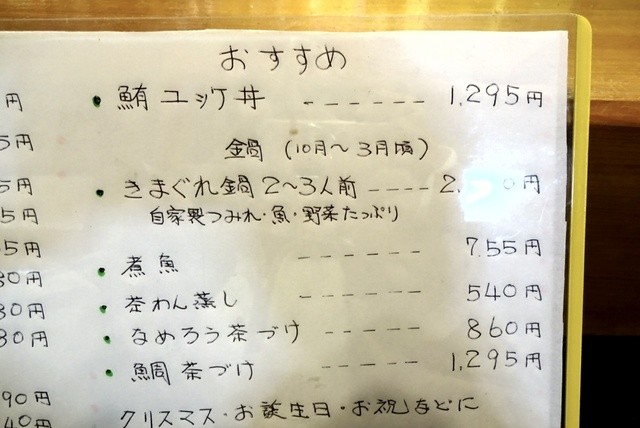 おすすめ
円 ・鮪ユッケ丼 ------ 1,295円
5円 金鍋 (10月〜3月頃)
5円 ・きまぐれ鍋2〜3人前 ---- 2. 0円
5円 自家製つみれ・魚・野菜たっぷり
55円 ・煮魚 ------ 7.55円
80円 ・茶わん蒸し ------ 540円
80円 ・なめろう茶づけ ----- 860円
80円 ・鯛茶づけ ----- 1,295円
90円
40円 クリスマス・お誕生日・お祝などに